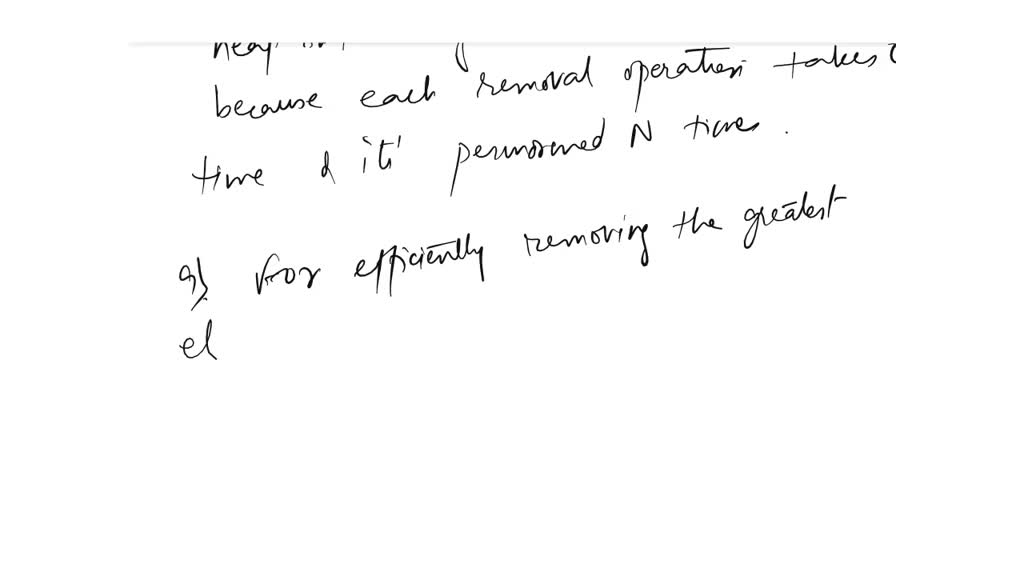 because each removal operation takes
time & it' permormed N times.
9) For efficiently removing the greatest
el